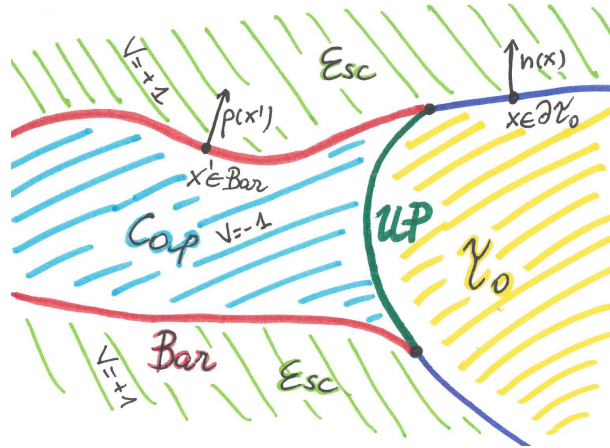 V=+1
Esc
n(x)
p(x')
x∈∂𝒯₀
x'∈Bar
Cap
V=-1
UP
𝒯₀
Bar
V=+1
Esc